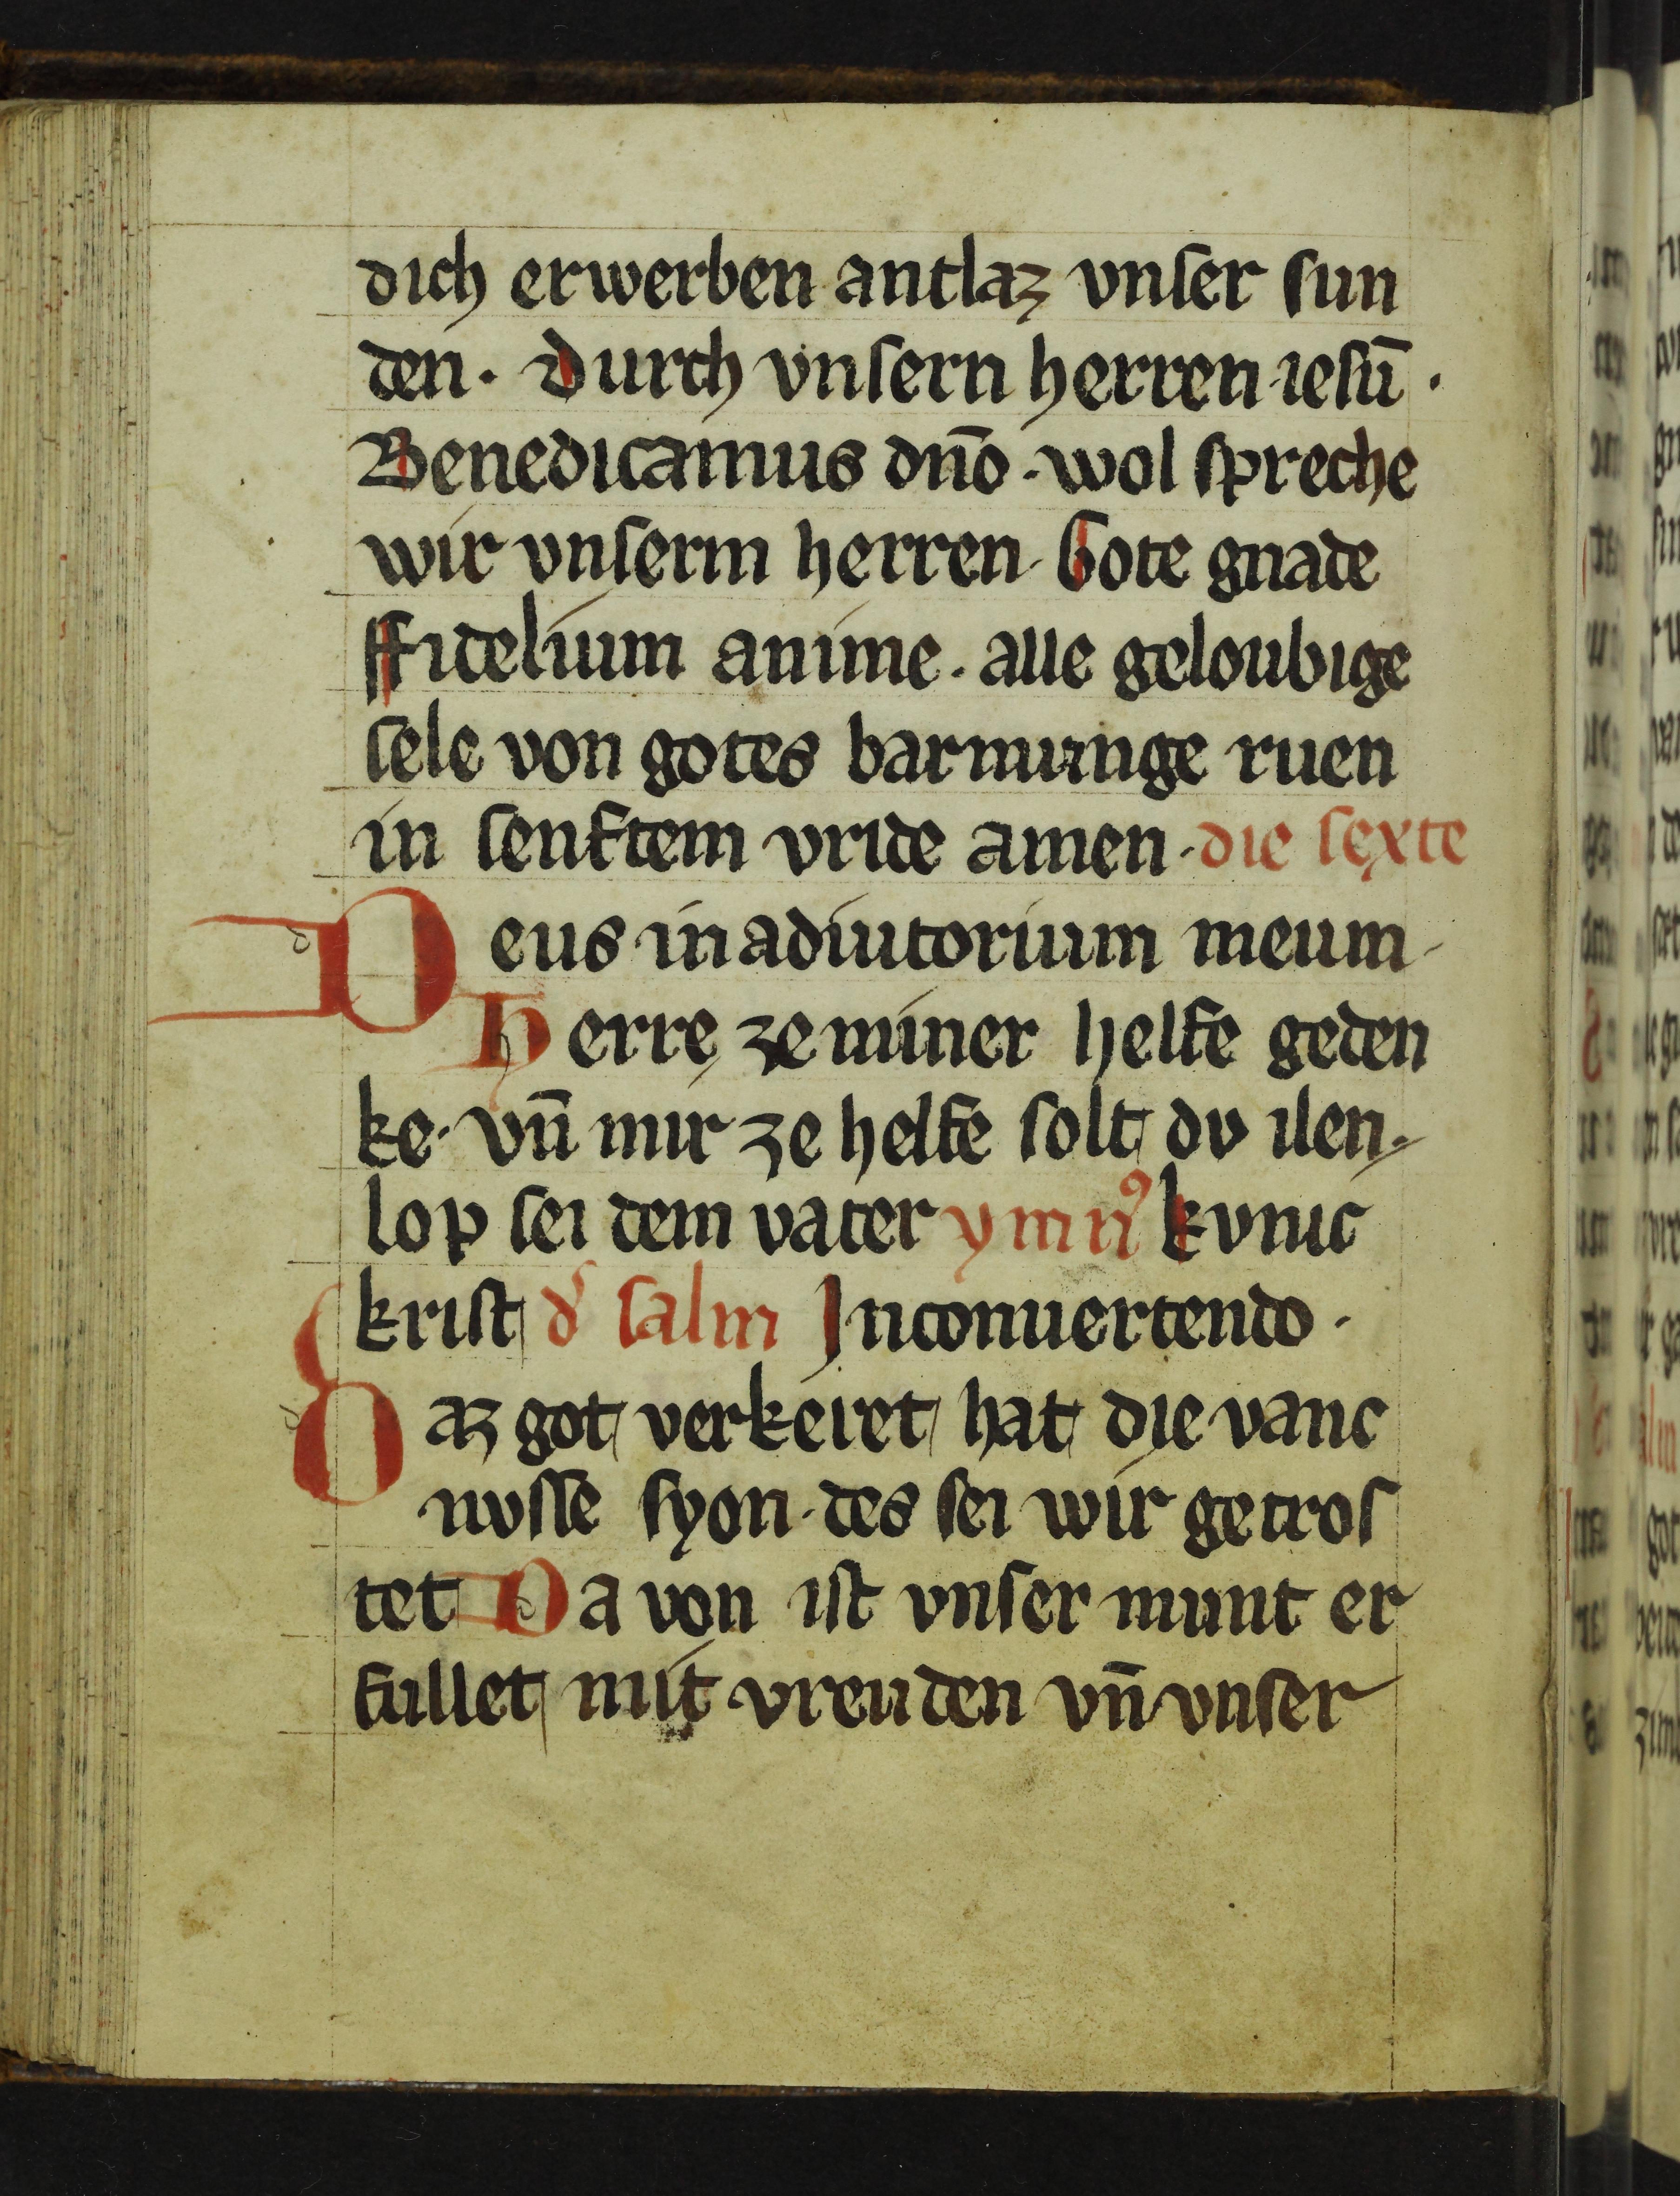 dich erwerben antlaz vnſer ſun
den. Durch vnſern herren ieſū.
Benedicamus dn̄o. wol ſpreche
wir vnſerm herren. Gote gnade
ffidelium anime. alle geloubige
ſele von gotes barmunge ruen
in ſenftem vride amen. die ſexte
Deus in adiutorium meum.
Herre ze miner helfe geden
ke. vn̄ mir ze helfe ſolt dv ilen.
lop ſei dem vater ymnꝰ kvnic
kriſt d͛ ſalm Inconuertendo.
Daz got verkeiret hat die vanc
nvſſe ſyon. des ſei wir getroſ
tet Da von iſt vnſer munt er
fullet mit vreuden vn̄ vnſer